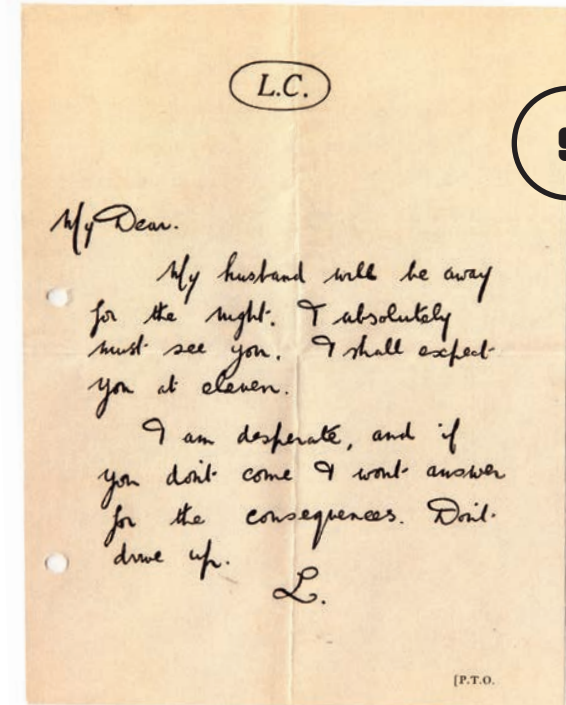 L.C.
My Dear.
My husband will be away
for the night. I absolutely
must see you. I shall expect
you at eleven.
I am desperate, and if
you don't come I won't answer
for the consequences. Don't
drive up.
L.
[P.T.O.